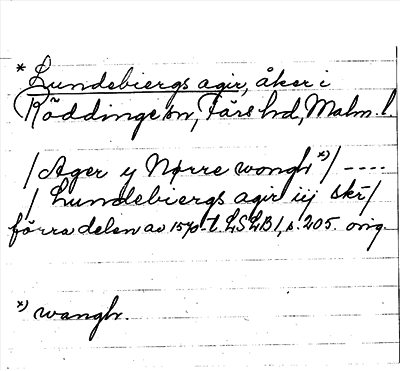 * Lundebiergs agir, åker i
Röddinge sn, Färs hd, Malm. l.
/Ager y Nørre wongh *)/ ----
/ Lundebiergs agir iij skr/
förra delen av 1570-t. LSLB1, s. 205. orig.
*) wangh.